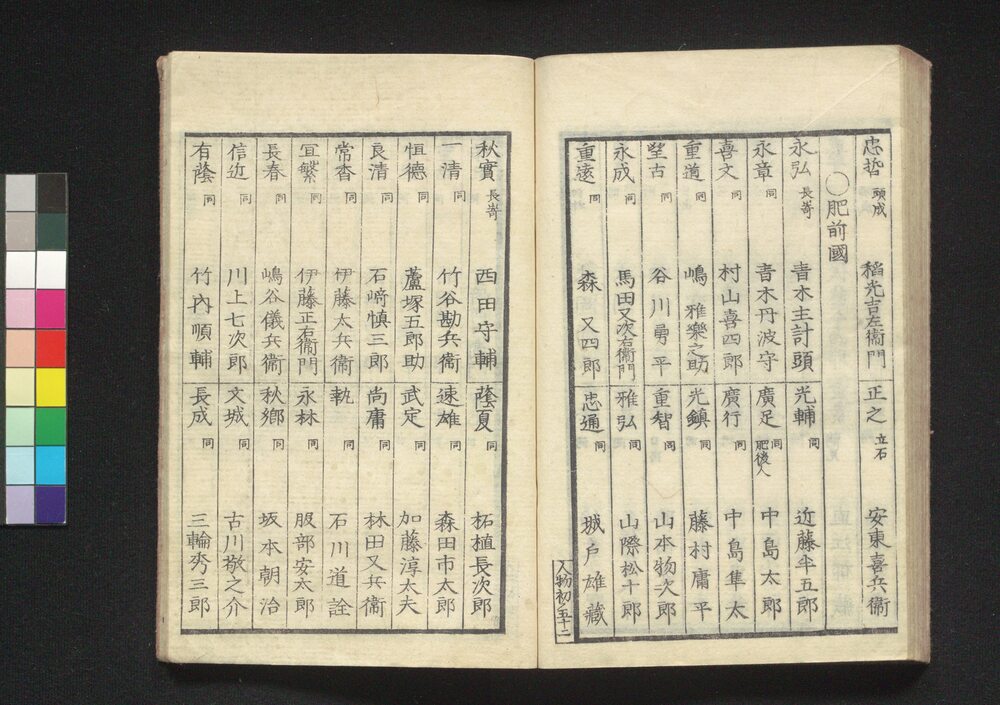 忠哲 頭成 稲光吉左衞門
正之 立石 安東喜兵衞
○肥前國
永弘 長嵜 青木主計頭
光輔 同 近藤半五郎
永章 同 青木丹波守
廣足 同 肥後人 中島太郎
喜文 同 村山喜四郎
廣行 同 中島隼太
重道 同 嶋雅樂之助
光鎮 同 藤村庸平
望古 同 谷川勇平
重智 同 山本物次郎
永成 同 馬田又次右衞門
雅弘 同 山際松十郎
重遠 同 森又四郎
忠通 同 城戸雄藏
人物初ノ五十二
秋實 長嵜 西田守輔
蔭夏 同 柘植長次郎
一清 同 竹谷勘兵衞
速雄 同 森田市太郎
恒德 同 蘆塚五郎助
武定 同 加藤淳太夫
良清 同 石﨑慎三郎
尚庸 同 林田又兵衞
常杳 同 伊藤太兵衞
執 同 石川道詮
宜繁 同 伊藤正右衞門
永林 同 服部安太郎
長春 同 嶋谷儀兵衞
秋鄉 同 坂本朝治
信近 同 川上七次郎
文城 同 古川敬之介
有蔭 同 竹内順輔
長成 同 三輪秀三郎